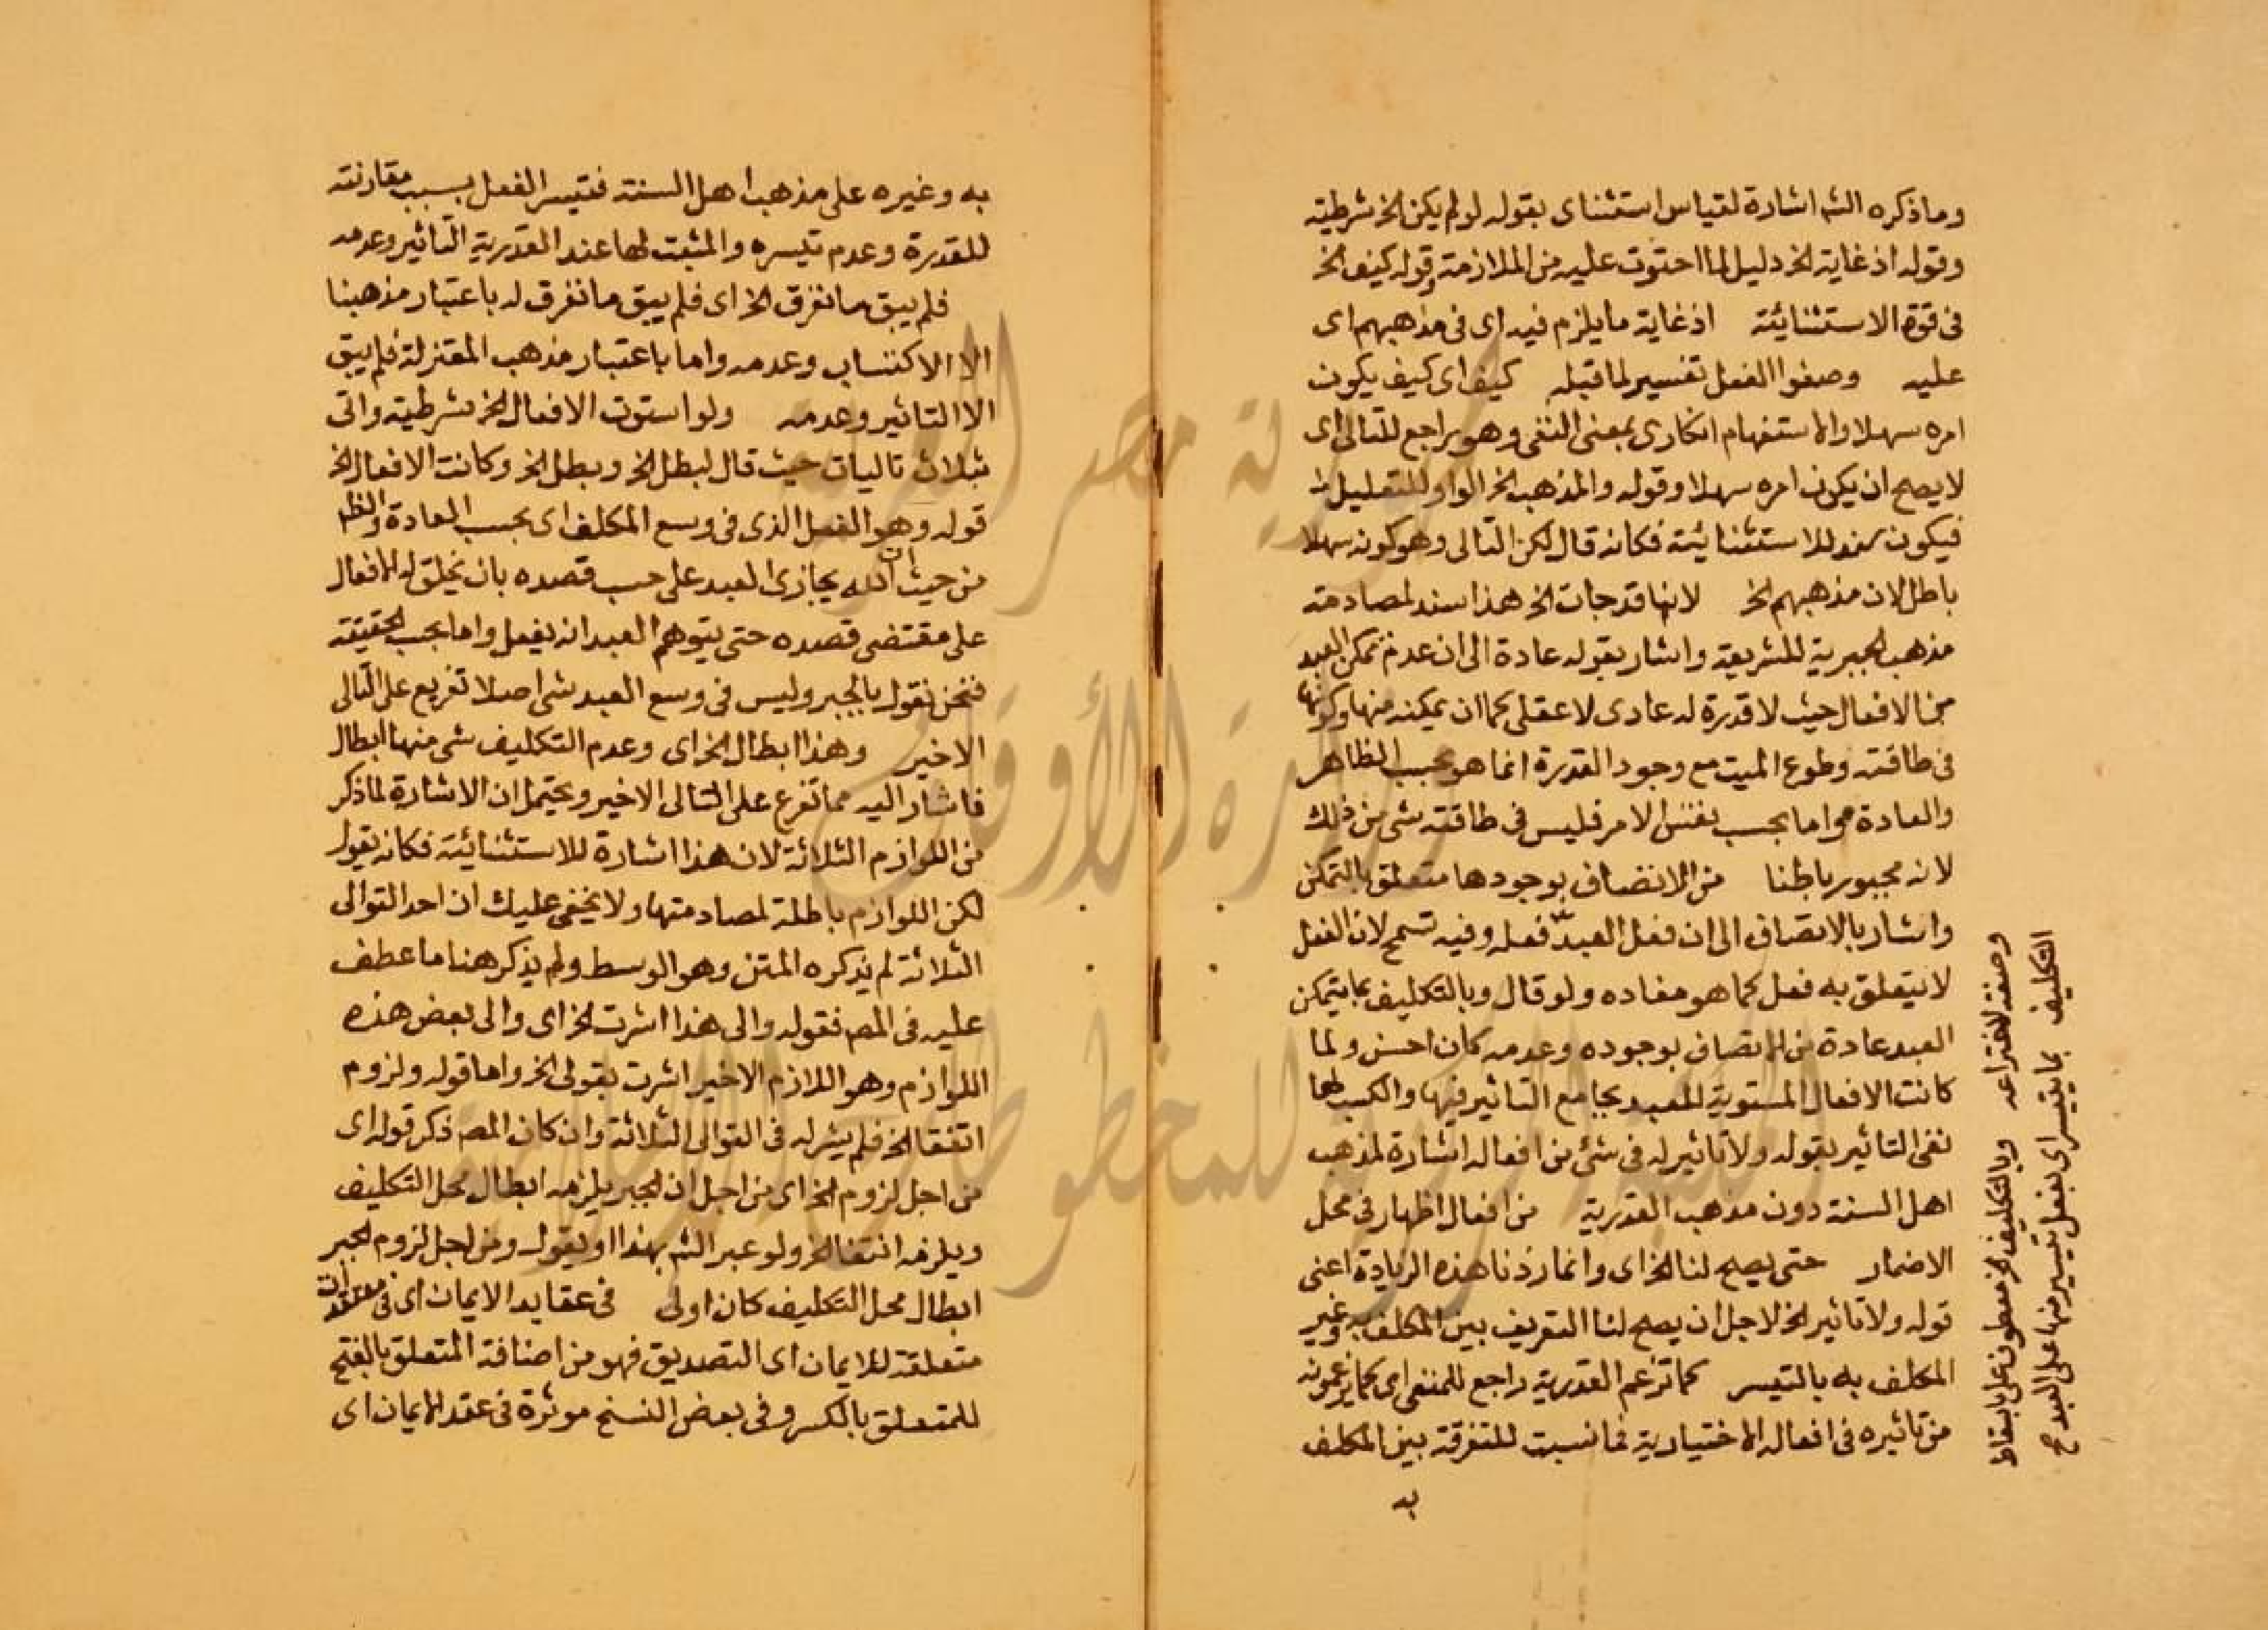 وماذكره الشـ اشارة لقياس استثناى بقوله لو لم يكن الخ شرطيته
وقوله اذ غاية الخ دليل لما احتوت عليه من الملازمة وقوله كيف الخ
فى قوة الاستثنائية اذ غاية ما يلزم فيه اى فى مذهبهم اى
عليه وصفوا الفعل تفسير لما قبله كيف اى كيف يكون
امره سهلا والاستفهام انكارى بمعنى النفى وهو راجع للتالى اى
لا يصح ان يكون امره سهلا وقوله والمذهب الخ الواو للتعليل
فيكون سند للاستثنائية فكانه قال لكن التالى وهو كونه سهلا
باطل لان مذهبهم الخ لانها قد جات الخ هذا سند لمصادمة
مذهب الجبرية للشريعة واشار بقوله عادة الى ان عدم تمكن العبد
من الافعال حيث لا قدرة له عادى لا عقلى كما ان تمكنه منها وكونها
فى طاقته وطوع الميت مع وجود القدرة انما هو بحسب الظاهر
والعادة واما بحسب نفس الامر فليس فى طاقته شى من ذلك
لانه مجبور باطنا من الاتصاف بوجودها متعلق بالتمكن
واشار بالاتصاف الى ان فعل العبد فعله وفيه تسمح لان الفعل
لا يتعلق به فعل كما هو مفاده ولو قال وبالتكليف بما يتمكن
العبد عادة من الاتصاف بوجوده وعدمه كان احسن ولما
كانت الافعال المستوية للعبد بجامع التاثير فيها والكسب لها
نفى التاثير بقوله ولا تاثير له فى شئ من افعاله اشارة لمذهب
اهل السنة دون مذهب القدرية من افعاله اظهار فى محل
الاضمار حتى يصح لنا الخ اى وانما زدنا هذه الزيادة اعنى
قوله ولا تاثير الخ لاجل ان يصح لنا التعريف بين المكلف به وغير
المكلف به بالتيسر كما تزعم القدرية راجع للمنفى اى كما يزعمونه
من تاثيره فى افعاله الاختيارية فما نسبت للتفرقة بين المكلف
به
وصفة لاختراعه وبالتكليف الخ معطوف على باسقاط
التكليف بما يتيسر اى بفعل تيسير منها على العبد ح
به وغيره على مذهب اهل السنة فتيسر الفعل بسبب مقارنته
للقدرة وعدم تيسره والمثبت لها عند القدرية التاثير وعدمه
فلم يبق ما نفرق الخ اى فلم يبق ما نفرق له باعتبار مذهبنا
الا الاكتساب وعدمه واما باعتبار مذهب المعتزلة فلم يبق
الا التاثير وعدمه ولو استوت الافعال الخ شرطية واتى
بثلاث تاليات حيث قال لبطل الخ وبطل الخ وكانت الافعال الخ
قوله وهو الفعل الذى فى وسع المكلف اى بحسب العادة والظـ
من حيث ان الله يجازى العبد على حسب قصده بان يخلق له الافعال
على مقتضى قصده حتى يتوهم العبد انه يفعل واما بحسب الحقيقة
فنحن نقول بالجبر وليس فى وسع العبد شى اصلا تفريع على التالى
الاخير وهذا ابطال الخ اى وعدم التكليف شى منها ابطال
فاشار اليه مما تفرع على التالى الاخير ويحتمل ان الاشارة لما ذكر
من اللوازم الثلاثة لان هذا اشارة للاستثنائية فكانه يقول
لكن اللوازم باطلة لمصادمتها ولا يخفى عليك ان احد التوالى
الثلاثة لم يذكره المتن وهو الوسط ولم يذكر هنا ما عطف
عليه فى المصـ فقوله والى هذا اشرت الخ اى والى بعض هذه
اللوازم وهو اللازم الاخير اشرت بقولى الخ واما قوله ولزوم
انتفا الخ فلم يشر له فى التوالى الثلاثة وان كان المصـ ذكر قوله اى
من اجل لزوم الخ اى من اجل ان الجبر يلزمه ابطال محل التكليف
ويلزمه انتفا الخ ولو عبر الشـ بهذا او يقول ومن اجل لزوم الجبر
ابطال محل التكليف كان اولى فى عقايد الايمان اى فى معتقدات
متعلقة للايمان اى التصديق فهو من اضافة المتعلق بالفتح
للمتعلق بالكسر وفى بعض النسخ موثرة فى عقد الايمان اى